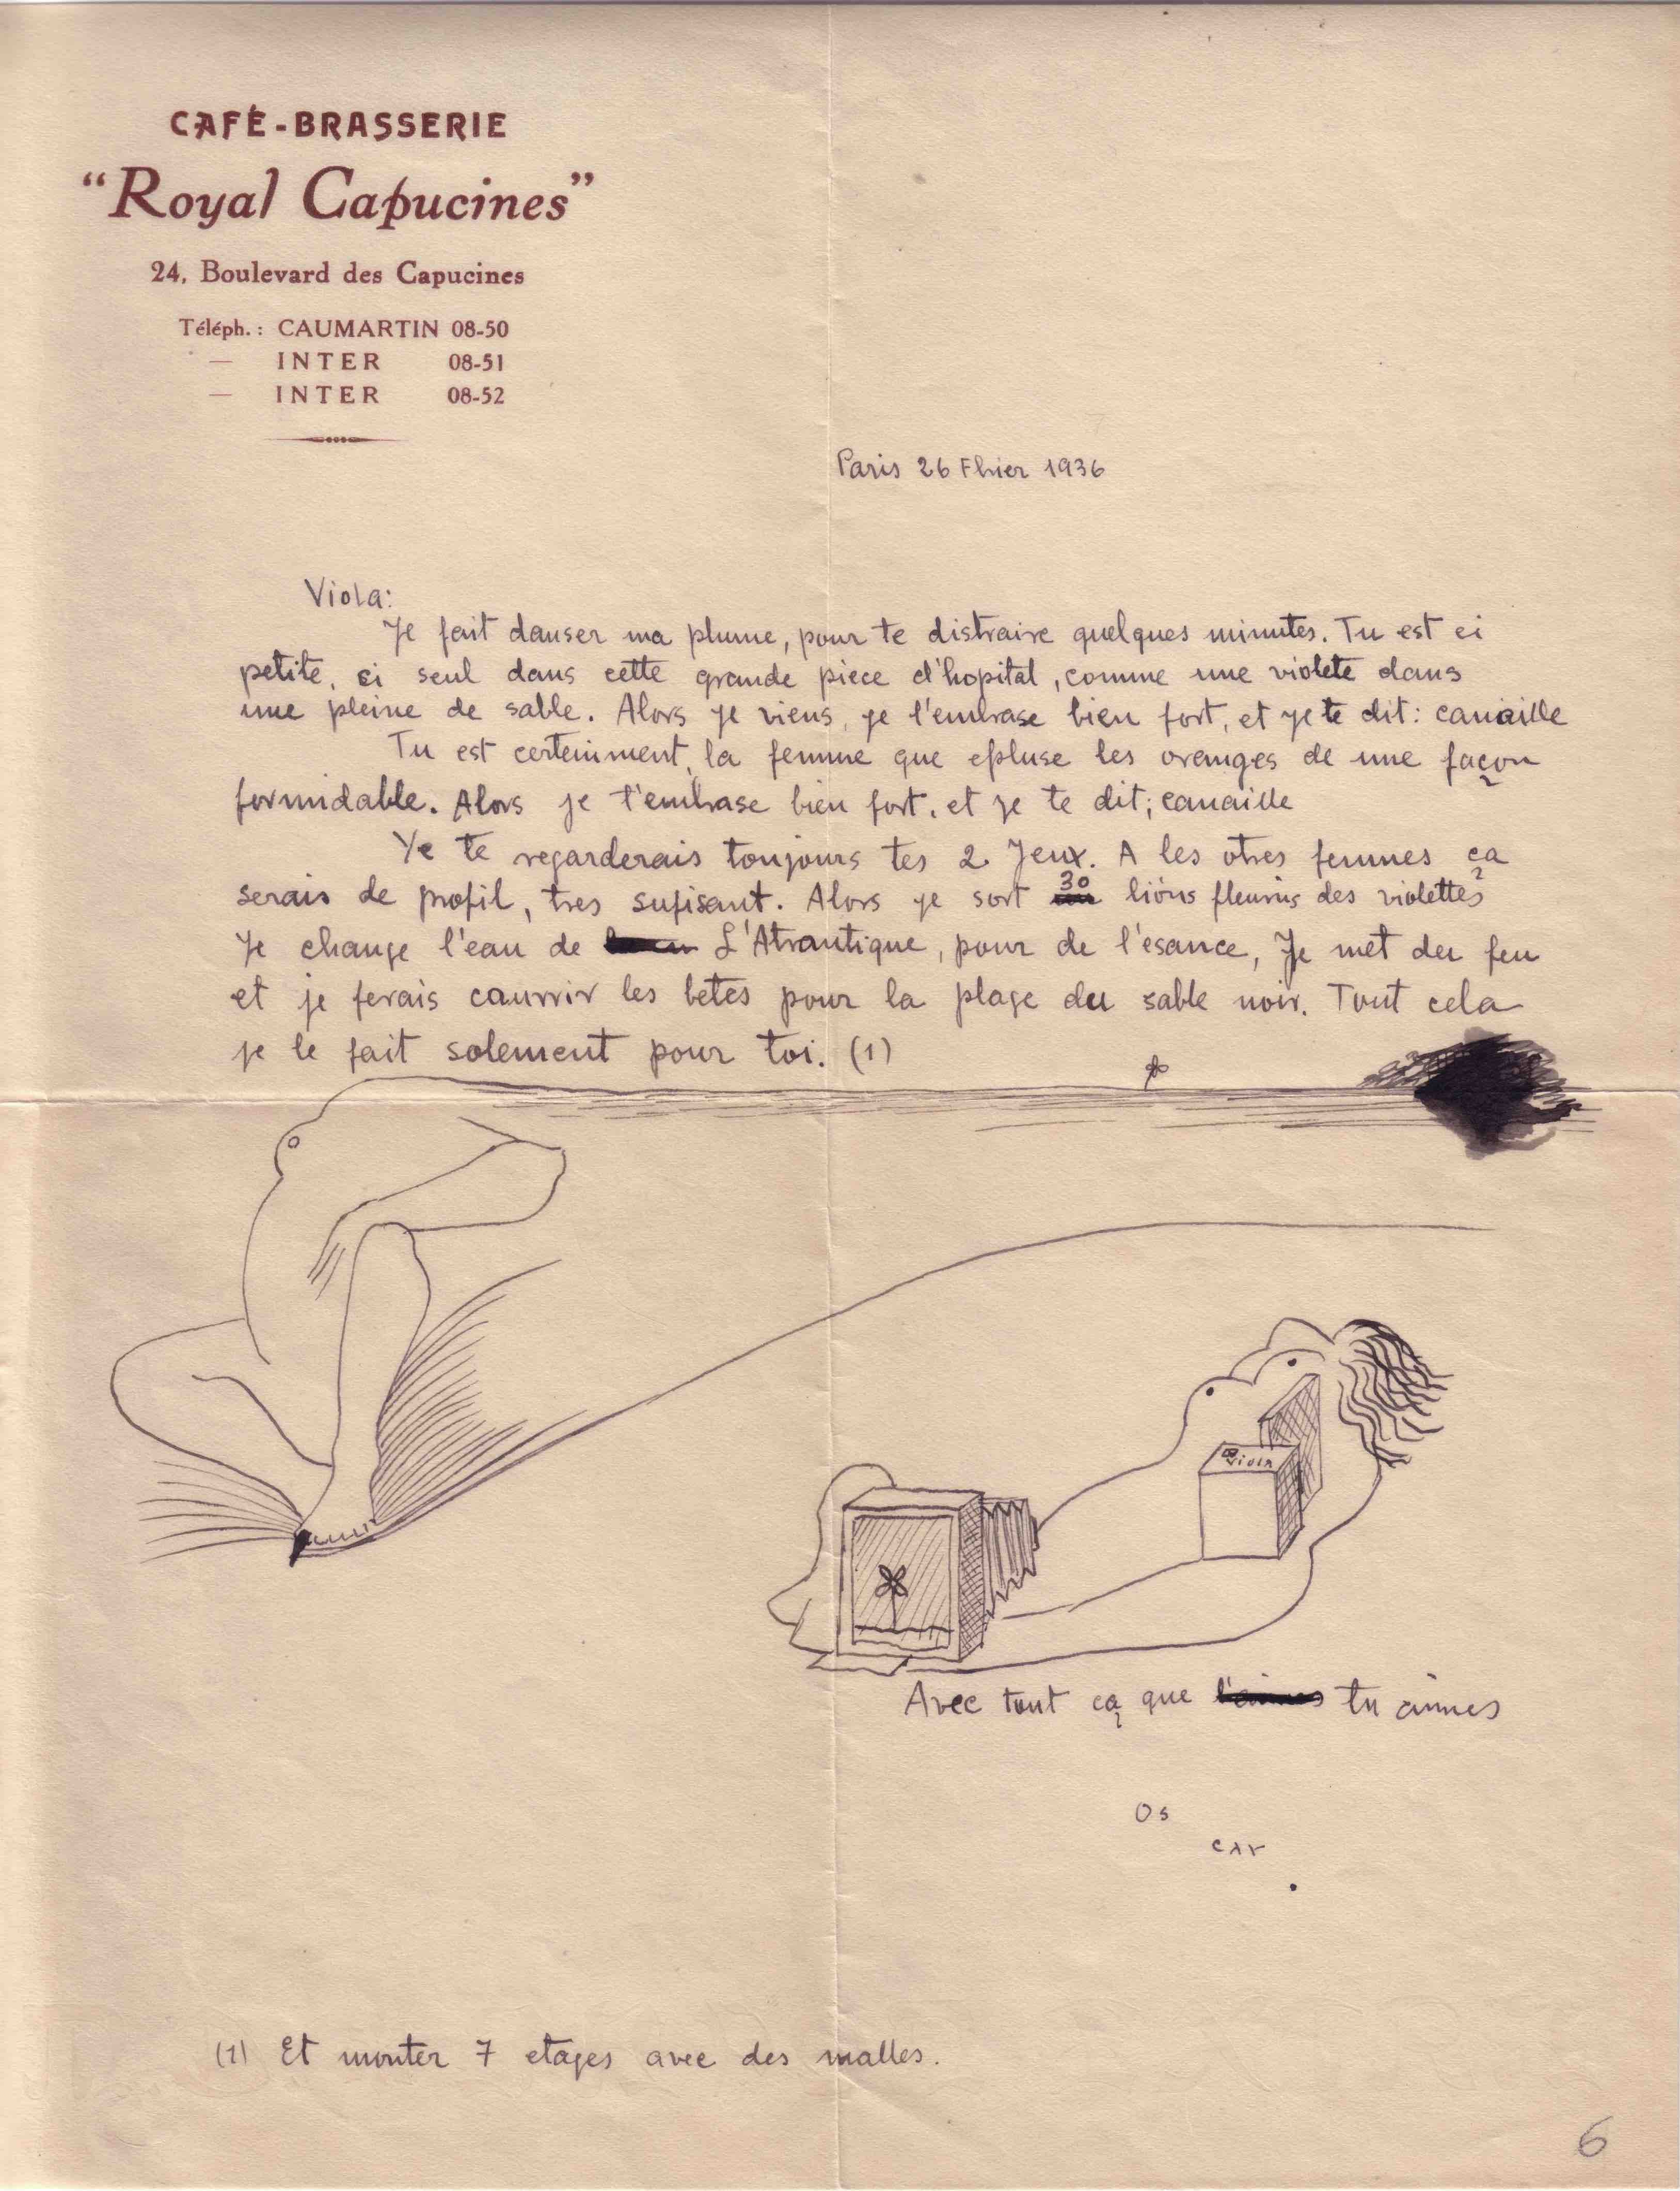 CAFÉ-BRASSERIE
"Royal Capucines"
24, Boulevard des Capucines
Téléph. : CAUMARTIN 08-50
— INTER 08-51
— INTER 08-52
Paris 26 Fhier 1936
Viola:
Je fait danser ma plume, pour te distraire quelques minutes. Tu est ci
petite, si seul dans cette grande piece d'hopital, comme une violete dans
une pleine de sable. Alors je viens, je t'embrase bien fort, et je te dit: canaille
Tu est certeinment, la femme que epluse les oranges de une façon
formidable. Alors je t'embrase bien fort, et je te dit; canaille
Ye te regarderais toujours tes 2 Jeux. A les otres femmes ça
serais de profil, tres sufisant. Alors je sort 30 lions fleuris des violettes
Je change l'eau de L'Atrantique, pour de l'esance, Je met du feu
et je ferais caurrir les betes pour la plage du sable noir. Tout cela
je le fait solement pour toi. (1)
Viola
Avec tout ça que tu aimes
Os
car
.
(1) Et monter 7 etages avec des malles.
6